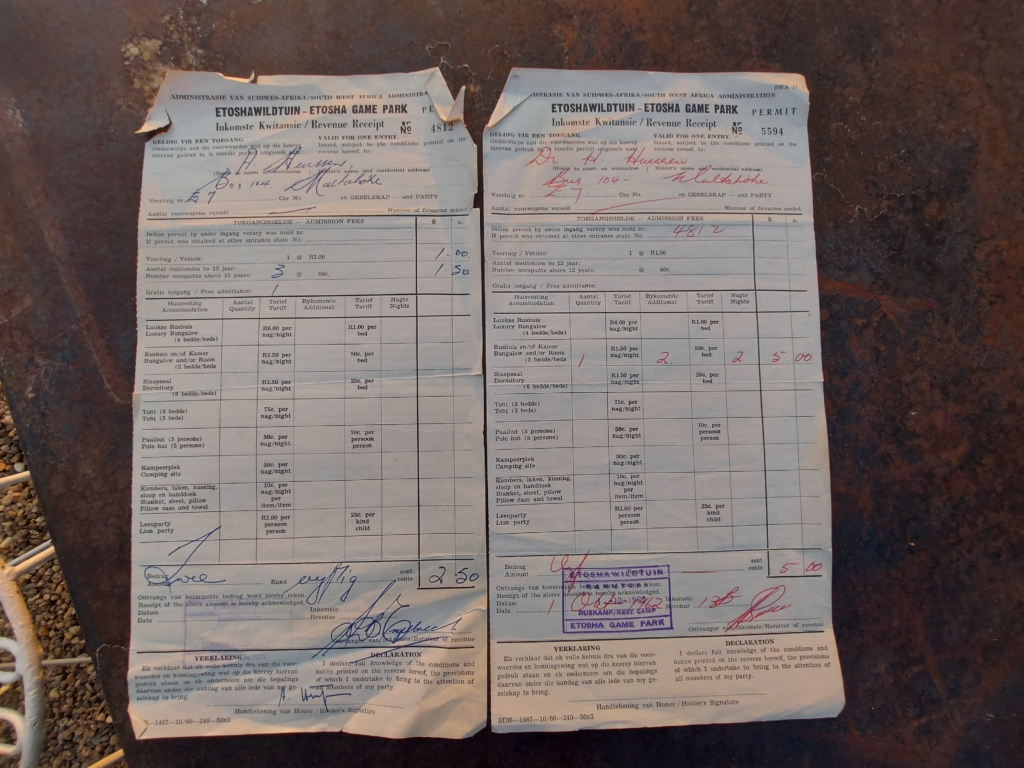 ADMINISTRASIE VAN SUIDWES-AFRIKA/SOUTH WEST AFRICA ADMINISTRATION
ETOSHAWILDTUIN – ETOSHA GAME PARK
Inkomste Kwitansie / Revenue Receipt No 4812
GELDIG VIR EEN TOEGANG. VALID FOR ONE ENTRY.
Box 104 Maltahöhe
Voertuig nr. E 7 Car No. en GESELSKAP — and PARTY
Aantal vuurwapens verseël Number of firearms sealed
TOEGANGSGELDE — ADMISSION FEES R c.
Indien permit by ander ingang verkry was meld nr.
If permit was obtained at other entrance state No.
Voertuig / Vehicle: 1 @ R1.00 1.00
Aantal insittendes bo 12 jaar:
Number occupants above 12 years: 3 @ 50c. 1 50
Gratis toegang / Free admittance: 1
Huisvesting Aantal Tarief Bykomende Tarief Nagte
Accommodation Quantity Tariff Additional Tariff Nights
Luukse Rushuis R6.00 per R1.00 per
Luxury Bungalow nag/night bed
(4 bedde/beds)
Rushuis en/of Kamer R1.50 per 50c. per
Bungalow and/or Room nag/night bed
(2 bedde/beds)
Slaapsaal R1.50 per 25c. per
Dormitory nag/night bed
(6 bedde/beds)
Tent (3 bedde) 75c. per
Tent (3 beds) nag/night
Paalhut (5 persone) 50c. per 10c. per
Pole hut (5 persons) nag/night persoon
person
Kampeerplek 50c. per
Camping site nag/night
Kombers, laken, kussing, 10c. per
sloop en handdoek nag/night
Blanket, sheet, pillow per
Pillow case and towel item/item
Leeuparty R1.00 per 25c. per
Lion party persoon kind
person child
Bedrag Rand sent
Amount Twee vyftig cents 2 50
Ontvangs van bovermelde bedrag word hierby erken.
Receipt of the above amount is hereby acknowledged.
Datum Inkomste
Date Revenue
Ontvanger van Inkomste/Receiver of revenue
VERKLARING DECLARATION
Ek verklaar dat ek volle kennis dra van die voor- I declare full knowledge of the conditions and
waardes en kennisgewing wat op die keersy hiervan notice printed on the reverse hereof, the provisions
gedruk staan en ek onderneem om die bepalings of which I undertake to bring to the attention of
daarvan onder die aandag van alle lede van my ge- all members of my party.
selskap te bring.
Handtekening van Houer / Holder's Signature
1467—10/60—240—50x3
ADMINISTRASIE VAN SUIDWES-AFRIKA/SOUTH WEST AFRICA ADMINISTRATION
ETOSHAWILDTUIN – ETOSHA GAME PARK PERMIT
Inkomste Kwitansie / Revenue Receipt No 5594
GELDIG VIR EEN TOEGANG. VALID FOR ONE ENTRY.
Dr H.
104 Maltahöhe
Voertuig nr. E 7 Car No. en GESELSKAP — and PARTY
Aantal vuurwapens verseël Number of firearms sealed
TOEGANGSGELDE — ADMISSION FEES R c.
Indien permit by ander ingang verkry was meld nr.
If permit was obtained at other entrance state No. 4812
Voertuig / Vehicle: 1 @ R1.00
Aantal insittendes bo 12 jaar:
Number occupants above 12 years: @ 50c.
Gratis toegang / Free admittance:
Huisvesting Aantal Tarief Bykomende Tarief Nagte
Accommodation Quantity Tariff Additional Tariff Nights
Luukse Rushuis R6.00 per R1.00 per
Luxury Bungalow nag/night bed
(4 bedde/beds)
Rushuis en/of Kamer R1.50 per 50c. per
Bungalow and/or Room 1 nag/night 2 bed 2 5 00
(2 bedde/beds)
Slaapsaal R1.50 per 25c. per
Dormitory nag/night bed
(6 bedde/beds)
Tent (3 bedde) 75c. per
Tent (3 beds) nag/night
Paalhut (5 persone) 50c. per 10c. per
Pole hut (5 persons) nag/night persoon
person
Kampeerplek 50c. per
Camping site nag/night
Kombers, laken, kussing, 10c. per
sloop en handdoek nag/night
Blanket, sheet, pillow per
Pillow case and towel item/item
Leeuparty R1.00 per 25c. per
Lion party persoon kind
person child
Bedrag sent
Amount cents 5 00
ETOSHAWILDTUIN
NAMUTONI
RUSKAMP/REST CAMP
ETOSHA GAME PARK
Datum
Date
Ontvanger van Inkomste/Receiver of revenue
VERKLARING DECLARATION
Ek verklaar dat ek volle kennis dra van die voor- I declare full knowledge of the conditions and
waardes en kennisgewing wat op die keersy hiervan notice printed on the reverse hereof, the provisions
gedruk staan en ek onderneem om die bepalings of which I undertake to bring to the attention of
daarvan onder die aandag van alle lede van my ge- all members of my party.
selskap te bring.
Handtekening van Houer / Holder's Signature
SDB—1467—10/60—240—50x3